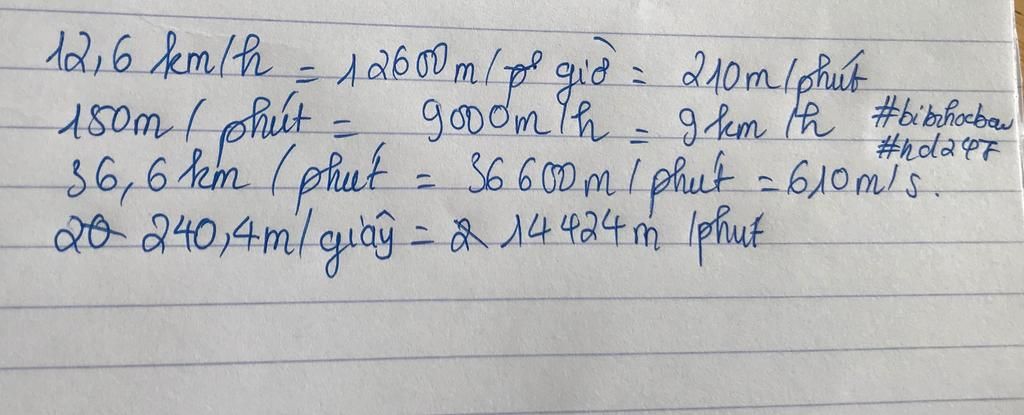 12,6 km/h = 12600m/ giờ = 210m/phút
150m/ phút = 9000m/h = 9km/h #bibihocbaw
36,6km/phút = 36600m/phút = 610m/s. #hd247
20 240,4m/giây = 2 14424m/phut